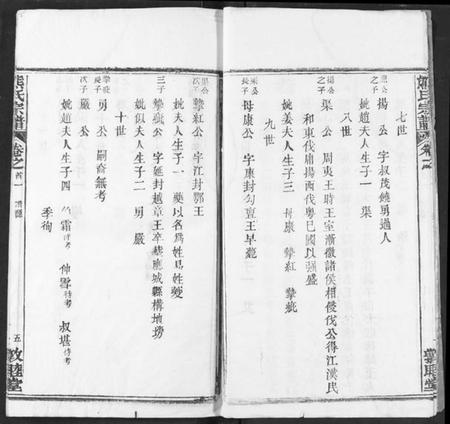 熊氏宗譜 卷之
七世
之子 揚公 字叔茂饒勇過人
妣趙夫人生子一 渠
八世
揚公之子 渠公 周夷王時王室漸微諸侯相侵伐公得江漢民
和東伐庸揚西伐粵巴國以强盛
妣姜夫人生子三 毋康 摯紅 摯疵
九世
渠公長子 毋康公 字康封句亶王早薨
渠公次子 摯紅公 字江封鄂王
妣夫人生子一 夔以名爲姓易姓夔
三子 摯疵公 字延封越章王卒葬應城縣構地塝
妣姒夫人生子二 勇 嚴
十世
摯疵長子 勇公 嗣裔無考
次子 嚴公
妣趙夫人生子四 霜待考 仲雪待考 叔堪待考
季徇
熊氏宗譜 卷之首一 五 敦睦堂